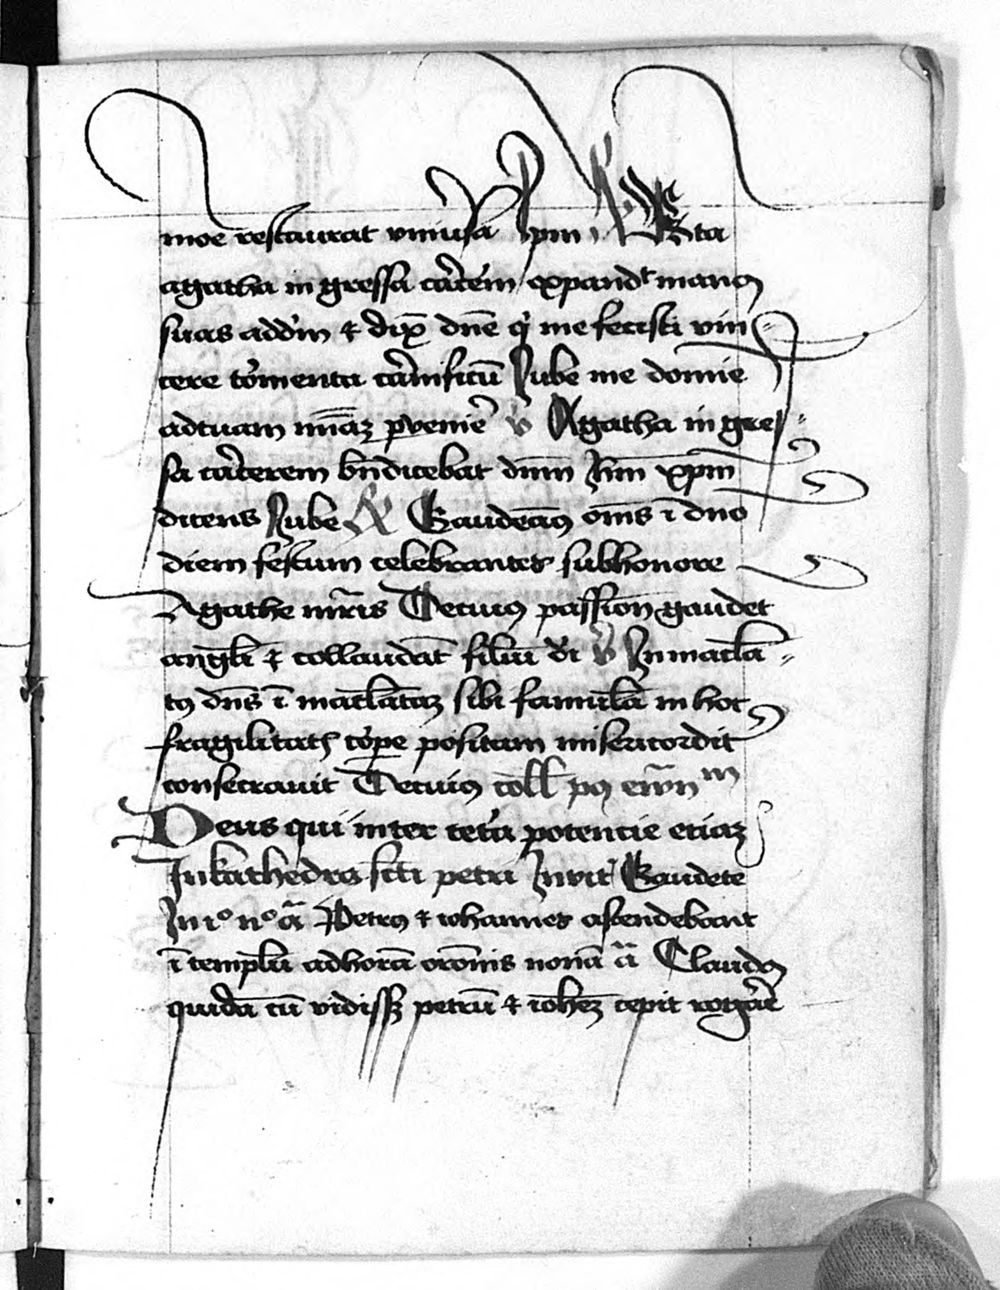 moe restaurat uniu̾sa Ipm R Bta
agatha in gressa cȧcėm expandit manus
suas addm̄ & dix̄ dn̄e qͥ me fecisti vin
cere tōmenta cȧnificū Iube me domīe
adtuam mīaꝫ ꝑvenie̾ v̾ Agatha in gres
sa cȧcerem bn̄dicebat dnm̄ Ihm xpm
dicens Iube R Gaudeaꝰ om̄s ī dn̄o
diem festum celebrantes subhonore
Agathe mr̄is De cuiꝰ passion̄ gaudet
angl̄i & collaudāt filiū di̾ v̾ Inmacl̄a
tꝰ dn̄s ī macl̄ataꝫ sibi famul̄ā in hoc
fragilitatis cōꝑe positam misericordit̾
consecravit De cuiꝰ coll̄ pꝰ ewn̄m
Deus qui inter cetȧ potencie etiaꝫ
In kathedra sc̄ti petri Invit̾ Gaudete
In iº nº ā Petrus & iohannes ascendebant
ī templū adhorā orōnis nonā ā Claudꝰ
quidā cū vidissꝫ petrū & iohēꝫ cepit rogȧe̾